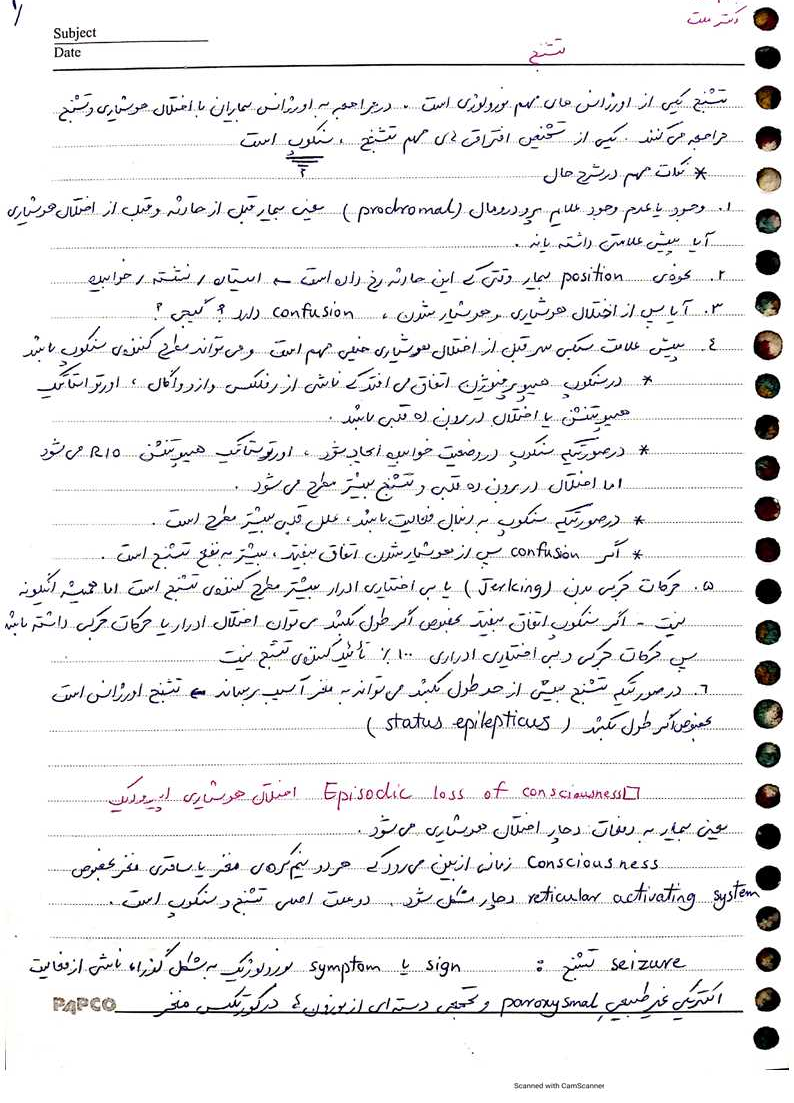 ۱
Subject
Date
دکتر ملت
تشنج
تشنج یکی از اورژانس های مهم نورولوژی است . در مراجعه به اورژانس بیماران با اختلال هوشیاری و تشنج
مراجعه می کنند . یکی از تشخیص افتراقی های مهم تشنج ، سنکوپ است
* نکات مهم در شرح حال
۱. وجود یا عدم وجود علایم پرودرومال (prodromal) یعنی بیمار قبل از حادثه و قبل از اختلال هوشیاری
آیا پیش علامتی داشته یا نه .
۲. نحوه ی position بیمار وقتی که این حادثه رخ داده است ← ایستاده / نشسته / خوابیده
۳. آیا پس از اختلال هوشیاری و هوشیار شدن ، confusion دارد ؟ گیجی ؟
٤. پیش علامت سبکی سر قبل از اختلال هوشیاری خیلی مهم است و می تواند مطرح کننده ی سنکوپ باشد
* در سنکوپ هیپوپرفیوژن اتفاق می افتد که ناشی از رفلکس وازوواگال ، اورتواستاتیک
هیپوتنشن یا اختلال در برون ده قلبی باشد .
* در صورتیکه سنکوپ در وضعیت خوابیده ایجاد شود ، اورتوستاتیک هیپوتنشن R/O می شود
اما اختلال در برون ده قلبی و تشنج بیشتر مطرح می شود .
* در صورتیکه سنکوپ به دنبال فعالیت باشد ، علل قلبی بیشتر مطرح است .
* اگر confusion پس از هوشیار شدن اتفاق بیفتد ، بیشتر به نفع تشنج است .
۵. حرکات حرکتی بدن (Jerking) یا بی اختیاری ادرار بیشتر مطرح کننده ی تشنج است اما همیشه اینگونه
نیست - اگر سنکوپ اتفاق بیفتد بخصوص اگر طول بکشد می توان اختلال ادرار یا حرکات حرکتی داشته باشد
پس حرکات حرکتی و بی اختیاری ادراری ۱۰۰٪ تأئید کننده ی تشنج نیست
٦. در صورتیکه تشنج بیش از حد طول بکشد می تواند به مغز آسیب برساند ← تشنج اورژانس است
بخصوص اگر طول بکشد (status epilepticus)
□ Episodic loss of consciousness اختلال هوشیاری اپیزودیک
یعنی بیمار به دفعات دچار اختلال هوشیاری می شود .
Consciousness زمانی از بین می رود که هر دو نیم کره ی مغز یا ساقه ی مغز بخصوص
reticular activating system دچار مشکل شود . دو علت اصلی تشنج و سنکوپ است .
seizure تشنج : sign یا symptom نورولوژیک به شکل گذرا ، ناشی از فعالیت
الکتریکی غیر طبیعی paroxysmal و تجمعی دسته ای از نورون ها در کورتکس مغز
PAPCO
Scanned with CamScanner